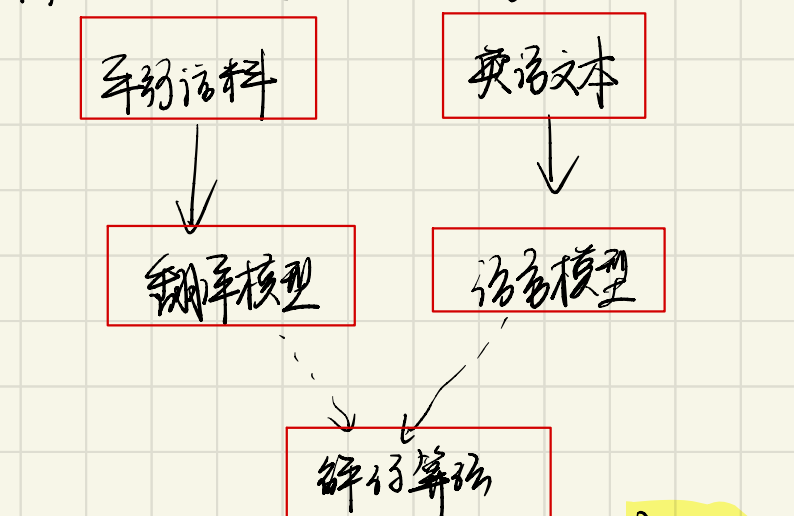 平行语料
英语文本
翻译模型
语言模型
解码算法